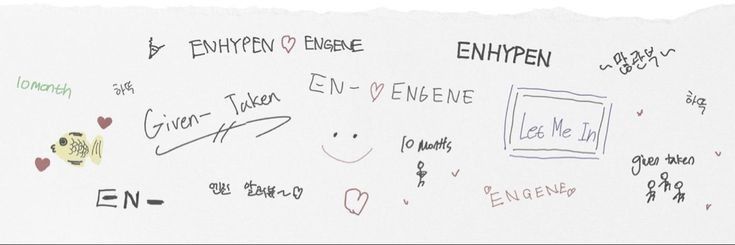 ENHYPEN ♡ ENGENE
ENHYPEN
~많관부~
10month
하뚝
EN- ♡ ENGENE
하뚝
Given- Taken
Let Me In
10 months
given taken
EN-
알러뷰~♡
ENGENE